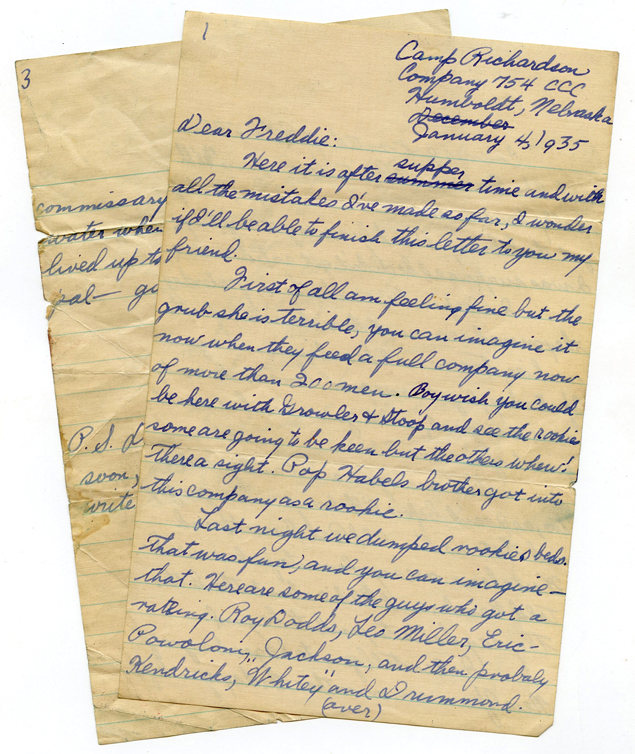 1
Camp Richardson
Company 754 CCC
Humboldt, Nebraska
December
January 4, 1935
Dear Freddie:
supper
Here it is after summer time and with
all the mistakes I've made so far, I wonder
if I'll be able to finish this letter to you my
friend.
First of all am feeling fine but the
grub she is terrible, you can imagine it
now when they feed a full company now
of more than 200 men. Boy wish you could
be here with Growler & Stoop and see the rookies
some are going to be keen but the others whew!
there a sight. Pop Habels brother got into
this company as a rookie.
Last night we dumped rookies beds.
that was fun, and you can imagine—
that. Here are some of the guys who got a
rating. Roy Dodds, Leo Miller, Eric-
Powolony, Jackson, and then probaly
Hendricks, "Whitey" and Drummond.
(over)
3
commissary
water when
lived up to
pal— go
P. S.
soon,
write